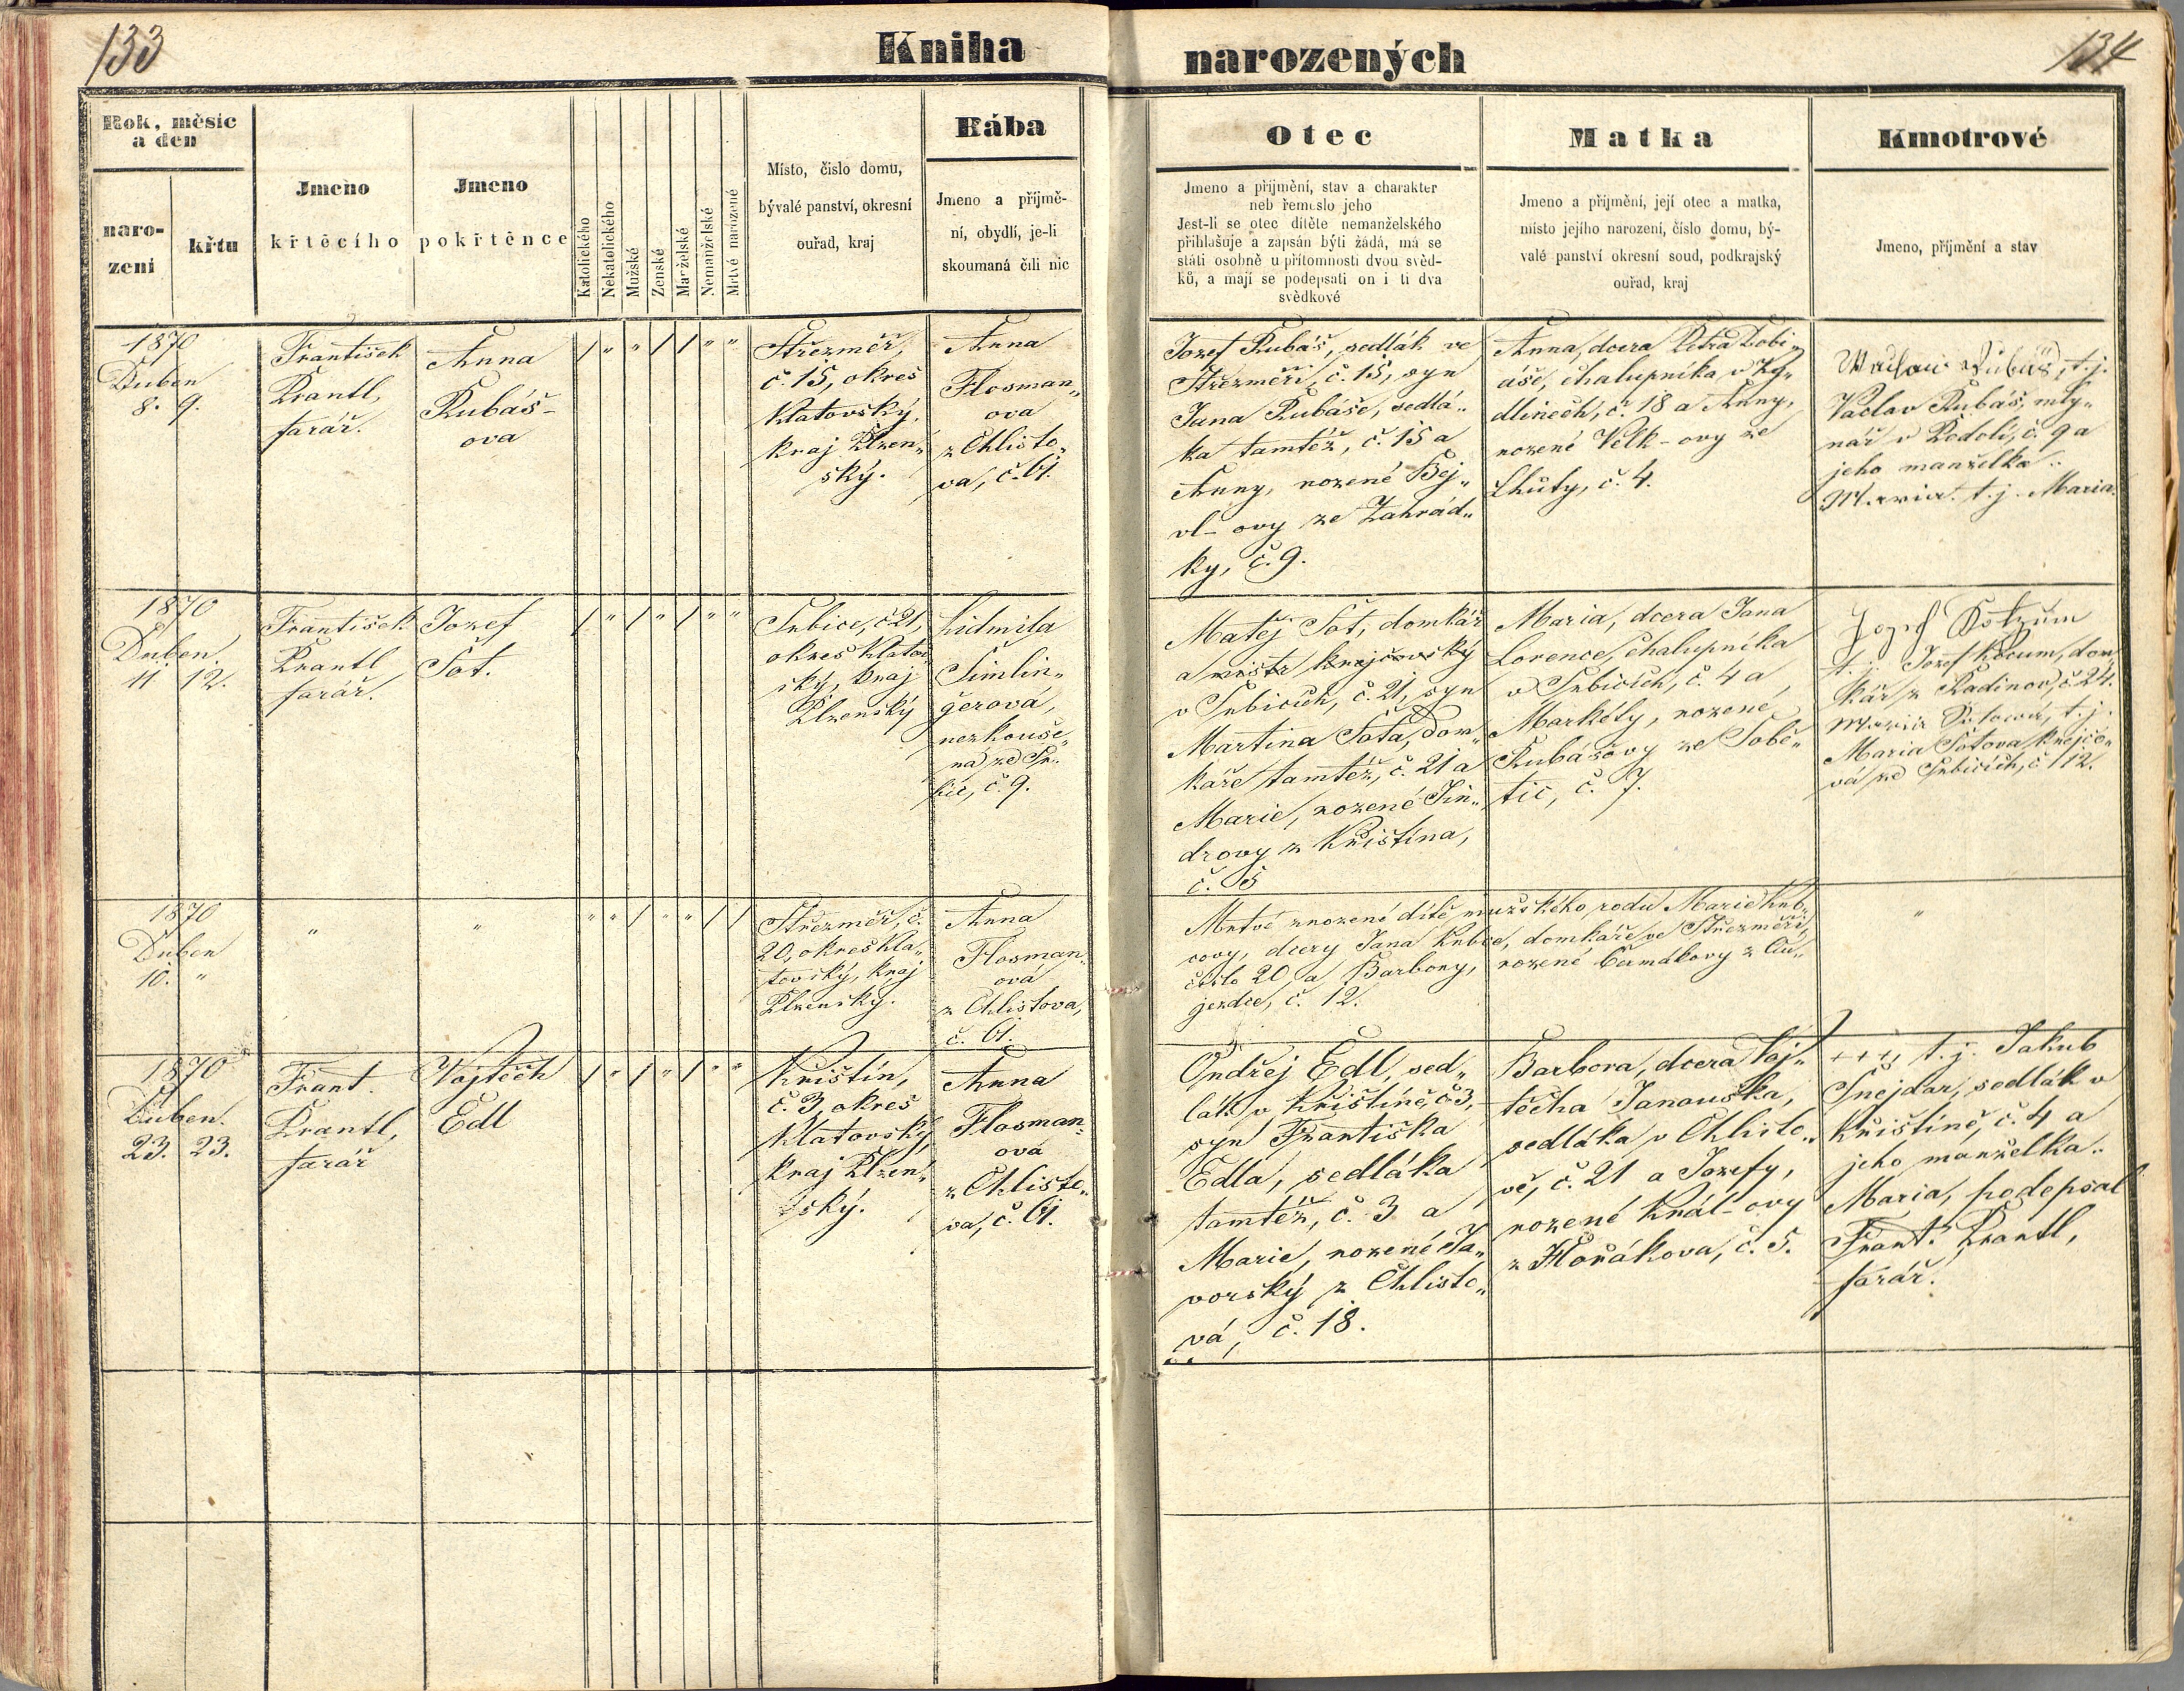 133
Kniha
narozených
134
Rok, měsíc
a den
naro-
zení
křtu
Jmeno
křtěcího
Jmeno
pokřtěnce
Katolického
Nekatolického
Mužské
Ženské
Manželské
Nemanželské
Mrtvé narozené
Místo, číslo domu,
bývalé panství, okresní
ouřad, kraj
Bába
Jmeno a příjmě-
ní, obydlí, je-li
skoumaná čili nic
Otec
Jmeno a příjmění, stav a charakter
neb řemeslo jeho
Jest-li se otec dítěte nemanželského
přihlašuje a zapsán býti žádá, má se
státi osobně u přítomnosti dvou svěd-
ků, a mají se podepsati on i ti dva
svědkové
Matka
Jmeno a příjmění, její otec a matka,
místo jejího narození, číslo domu, bý-
valé panství okresní soud, podkrajský
ouřad, kraj
Kmotrové
Jmeno, příjmění a stav
1870
Duben
8. 9.
František
Brantl,
farář.
Anna
Rubáš-
ova
/ " " / / " "
Střezměř,
č. 15, okres
Klatovský,
kraj Plzen„
ský.
Anna
Flosman„
ova
z Chlisto„
va, č. 61.
Jozef Rubáš, sedlák ve
Střezměři, č. 15, syn
Jana Rubáše, sedlá„
ka tamtéž, č. 15 a
Anny, rozené Bej„
vl-ovy ze Zahrád„
ky, č. 9.
Anna, dcera Petra Tobi„
áše, chalupníka v Vy„
dlinech, č. 18 a Anny,
rozené Velk-ovy ze
Lhůty, č. 4.
Václav Rubáš, t. j.
Václav Rubáš, mly„
nář v Podolí, č. 9 a
jeho manželka„
Maria. t. j. Maria.
1870
Duben.
11 12.
František
Brantl
farář.
Jozef
Šot.
/ " / " / " "
Srbice, č. 21,
okres Klatov„
ský, kraj
Plzenský
Lidmila
Šimlin„
gerová,
nezkouše„
ná ze Sr„
bic, č. 9.
Matěj Šot, domkář
a mistr krejčovský
v Srbicích, č. 21, syn
Martina Šota, dom„
káře tamtéž, č. 21 a
Marie, rozené Jin„
drovy z Křištína,
č. 5
Maria, dcera Jana
Lorence, chalupníka
v Srbicích, č. 4 a
Markéty, rozené
Rubášovy ze Sobě„
tic, č. 7.
Jozef
t. j. Jozef Kocum, dom„
kář z Radinov, č. 24.
Maria Šotowá, t. j.
Maria Šotova, krejčo„
vá ze Srbicích, č. 112.
1870
Duben
10. "
"
"
" " / " " / /
Střezměř, č.
20, okres Kla„
tovský, kraj
Plzenský.
Anna
Flosman„
ová
z Chlistova,
č. 61.
Mrtvé zrozené dítě mužského rodu Marie Kub„
covy, dcery Jana Kubce, domkáře ve Střezměři,
číslo 20 a Barbory, rozené Čermákovy z Au„
jezdce, č. 12.
"
1870
Duben.
23. 23.
Frant.
Brantl,
farář
Vojtěch
Edl
/ " / " / " "
Křištín,
č. 3, okres
Klatovský,
kraj Plzen„
ský.
Anna
Flosman„
ová
z Chlisto„
va, č. 61.
Ondřej Edl, sed„
lák v Křištíně, č. 3,
syn Františka
Edla, sedláka
tamtéž, č. 3 a
Marie, rozené Ja„
vorský z Chlisto„
va, č. 18.
Barbora, dcera Voj„
těcha Janouška,
sedláka v Chlisto„
vě, č. 21 a Jozefy,
rozené Král-ovy
z Hořákova, č. 5.
+++, t. j. Jakub
Šnejdar, sedlák v
Křištíně, č. 4 a
jeho manželka„
Maria, podepsal
Frant. Brantl,
farář.